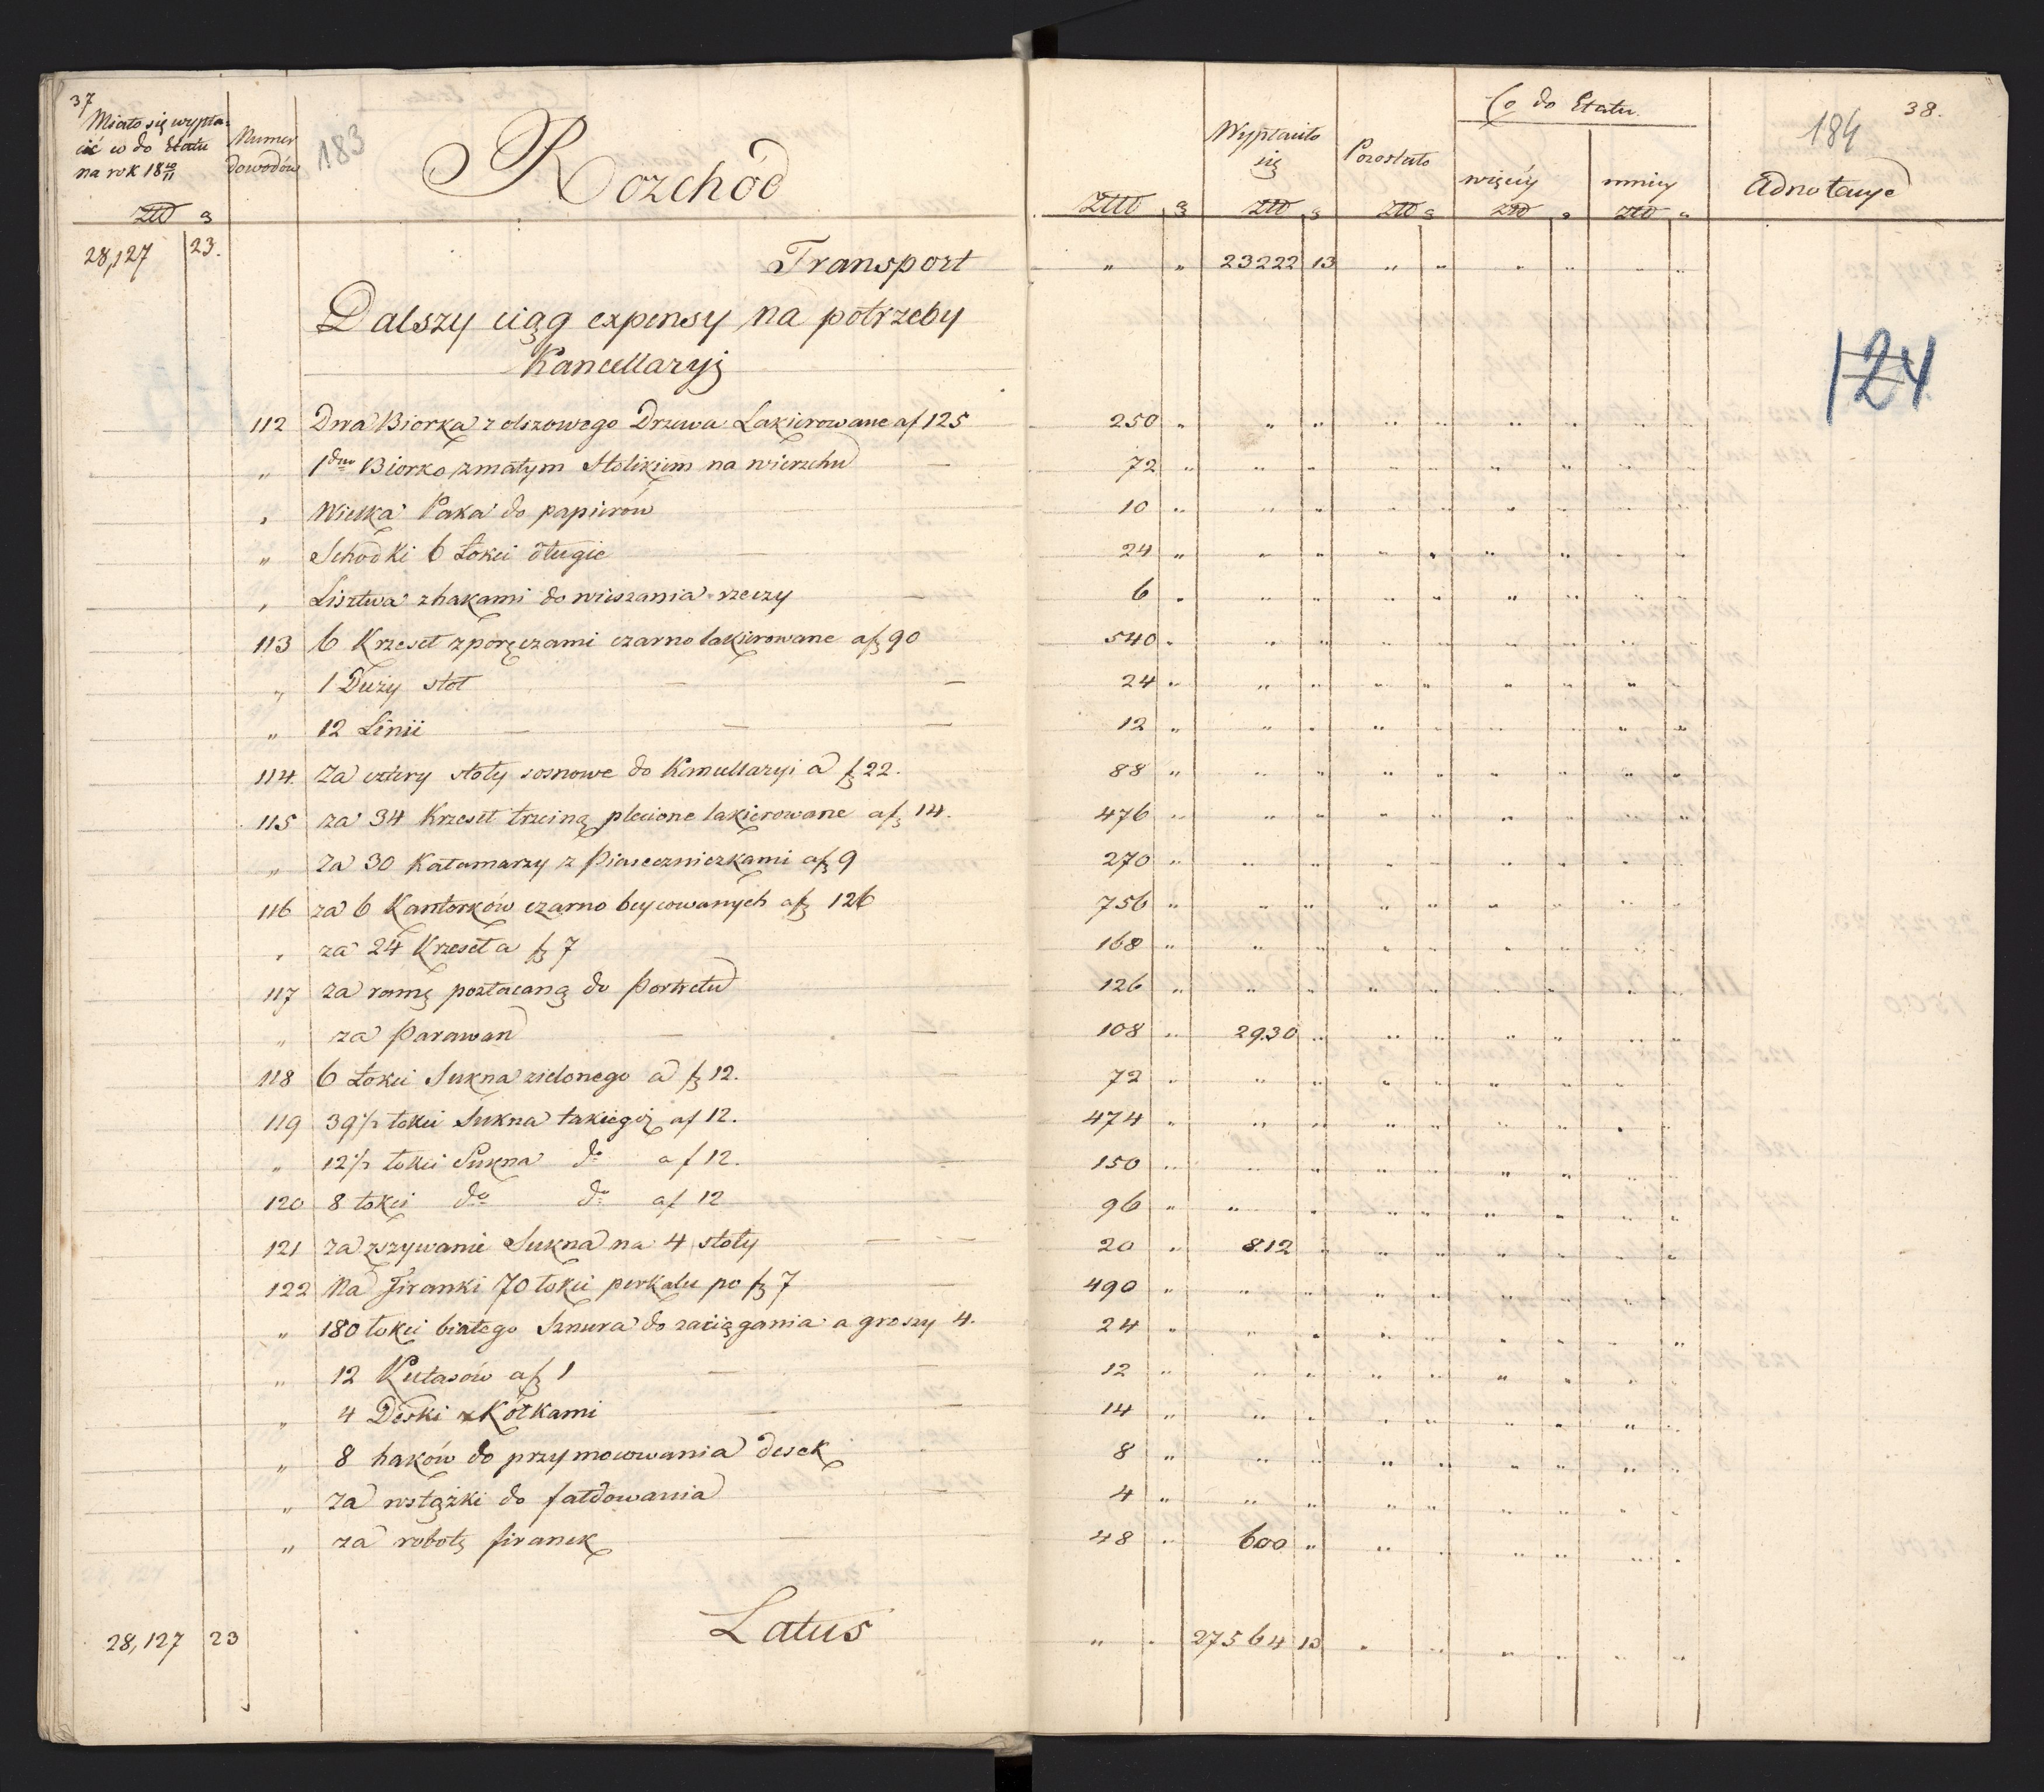 37
Miało się wypła-
cić co do Etatu
na rok 18 10/11
Złł g
Numer
dowodów
183
Rozchód
Złł g
Wypłaciło
się
Złł g
Pozostało
Złł g
Co do Etatu
więcéy
Złł g
mniéy
Złł g
184
38.
Adnotacye
28,127 23. Transport " " 23222 13 " " " " " "
Dalszy ciąg expensy na potrzeby
Kancellaryi
124
112 Dwa Biorka z olszowego Drzewa Lakierowane a f 125 250 "
" 1 dno Biorko z małym Stolikiem na wierzchu — 72 "
" Wielka Paka do papierów 10 "
" Schodki 6 Łokci długie — 24 "
" Lisztwa z hakami do wieszania rzeczy — 6 "
113 6 Krzeseł z poręczami czarno lakierowane a f 90 540 "
" 1 Duży stoł — — 24 "
" 12 Linii — — — 12 "
114. Za cztery stoły sosnowe do Kancellaryi a f 22. 88 "
115 za 34 Krzeseł trzciną plecione lakierowane a f 14. 476 "
" Za 30 Kałamarzy z Piaseczniczkami a f 9 270 "
116 za 6 Kantorków czarno beycowanych a f 126 756 "
" za 24 Krzeseł a f 7 168 "
117 Za ramę pozłacaną do Portretu 126 "
" za Parawan — — 108 " 2930 "
118 6 Łokci Sukna zielonego a f 12. 72 "
119 39 1/2 łokci Sukna takiegoż a f 12. 474 "
" 12 1/2 łokci Sukna do a f 12. 150 "
120 8 łokci do do a f 12 96 "
121 Za zszywanie Sukna na 4 stoły — 20 " 812 "
122 Na Firanki 70 łokci perkalu po f 7 — 490 "
" 180 łokci białego Sznura do zaciągania a groszy 4. 24 "
" 12 Kutasów a f 1 — — 12 "
" 4 Deski z Kółkami — — 14 "
" 8 haków do przymocowania desek 8 "
" Za wstążki do fałdowania — 4 "
" za robotę firanek — 48 " 600 "
28,127 23 Latus " " 27564 13 " " " " " "